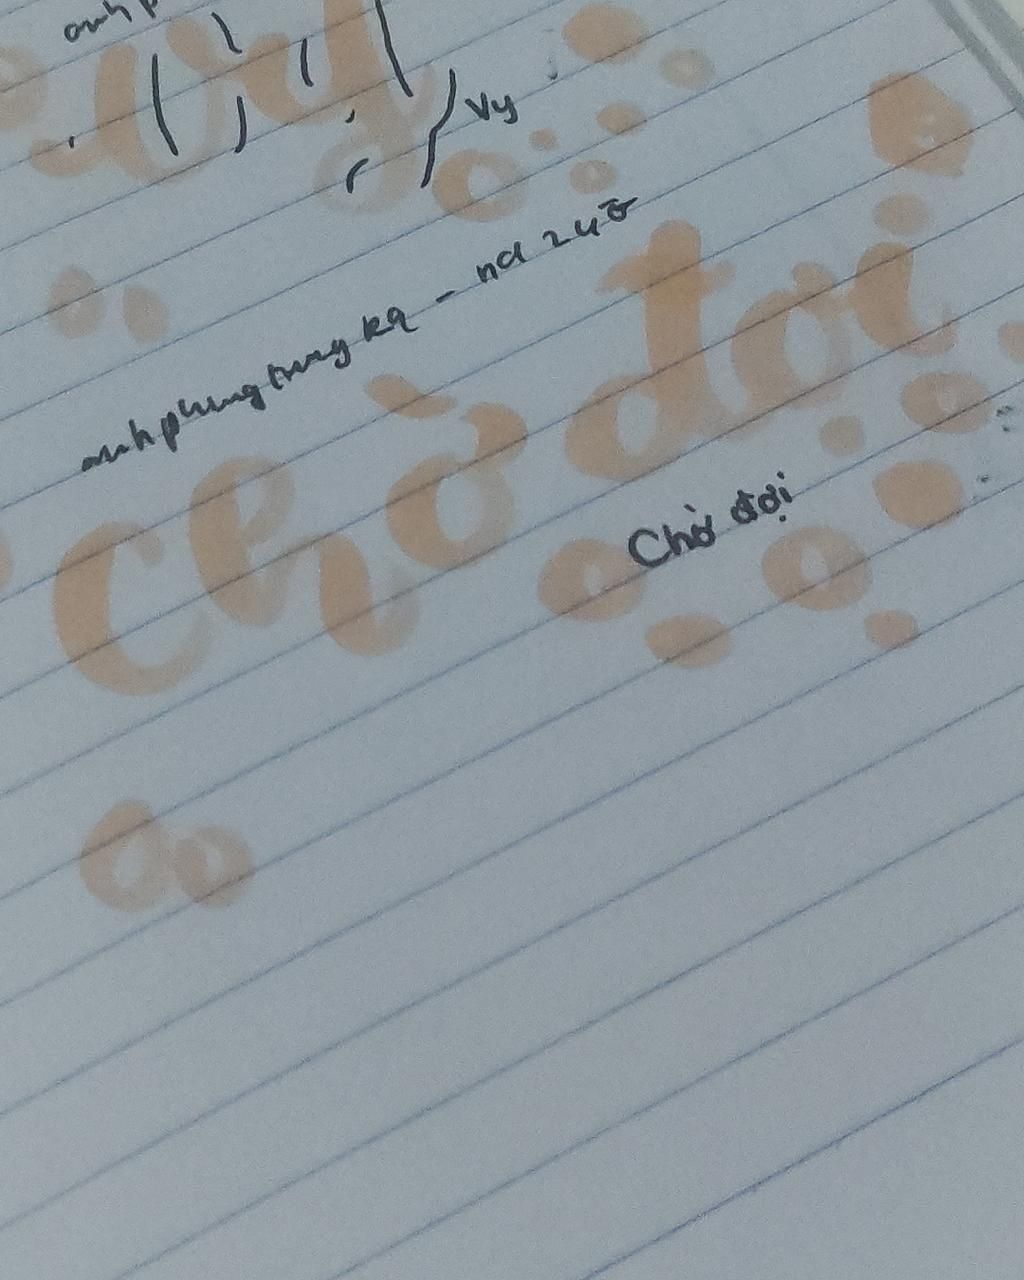 anh p
Vy
anhphungtrungkq - nd 24
Chờ đợi
Chờ đợi